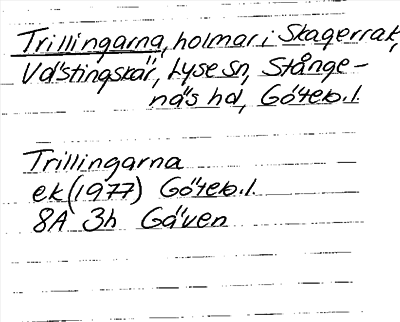 Trillingarna, holmar i Skagerrak,
Västingskär, Lyse sn, Stånge-
näs hd, Göteb.l.
Trillingarna
ek (1977) Göteb.l.
8A 3h Gäven